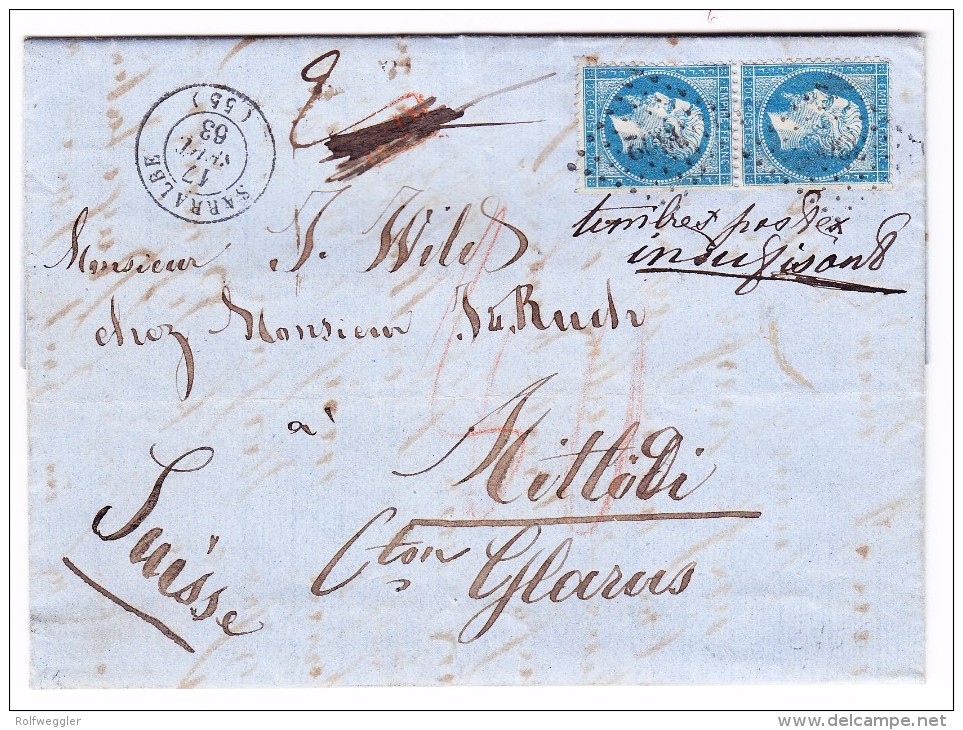 SARRALBE
17
JUIL
63
(55)
2
EMPIRE FRANC
20 C POSTES
EMPIRE FRANC
20 C POSTES
timbres postes
insuffisants
Monsieur J. Wild
chez Monsieur Ruch
à Mittlödi
Cton Glarus
Suisse
Rolfweggler
delcampe.net